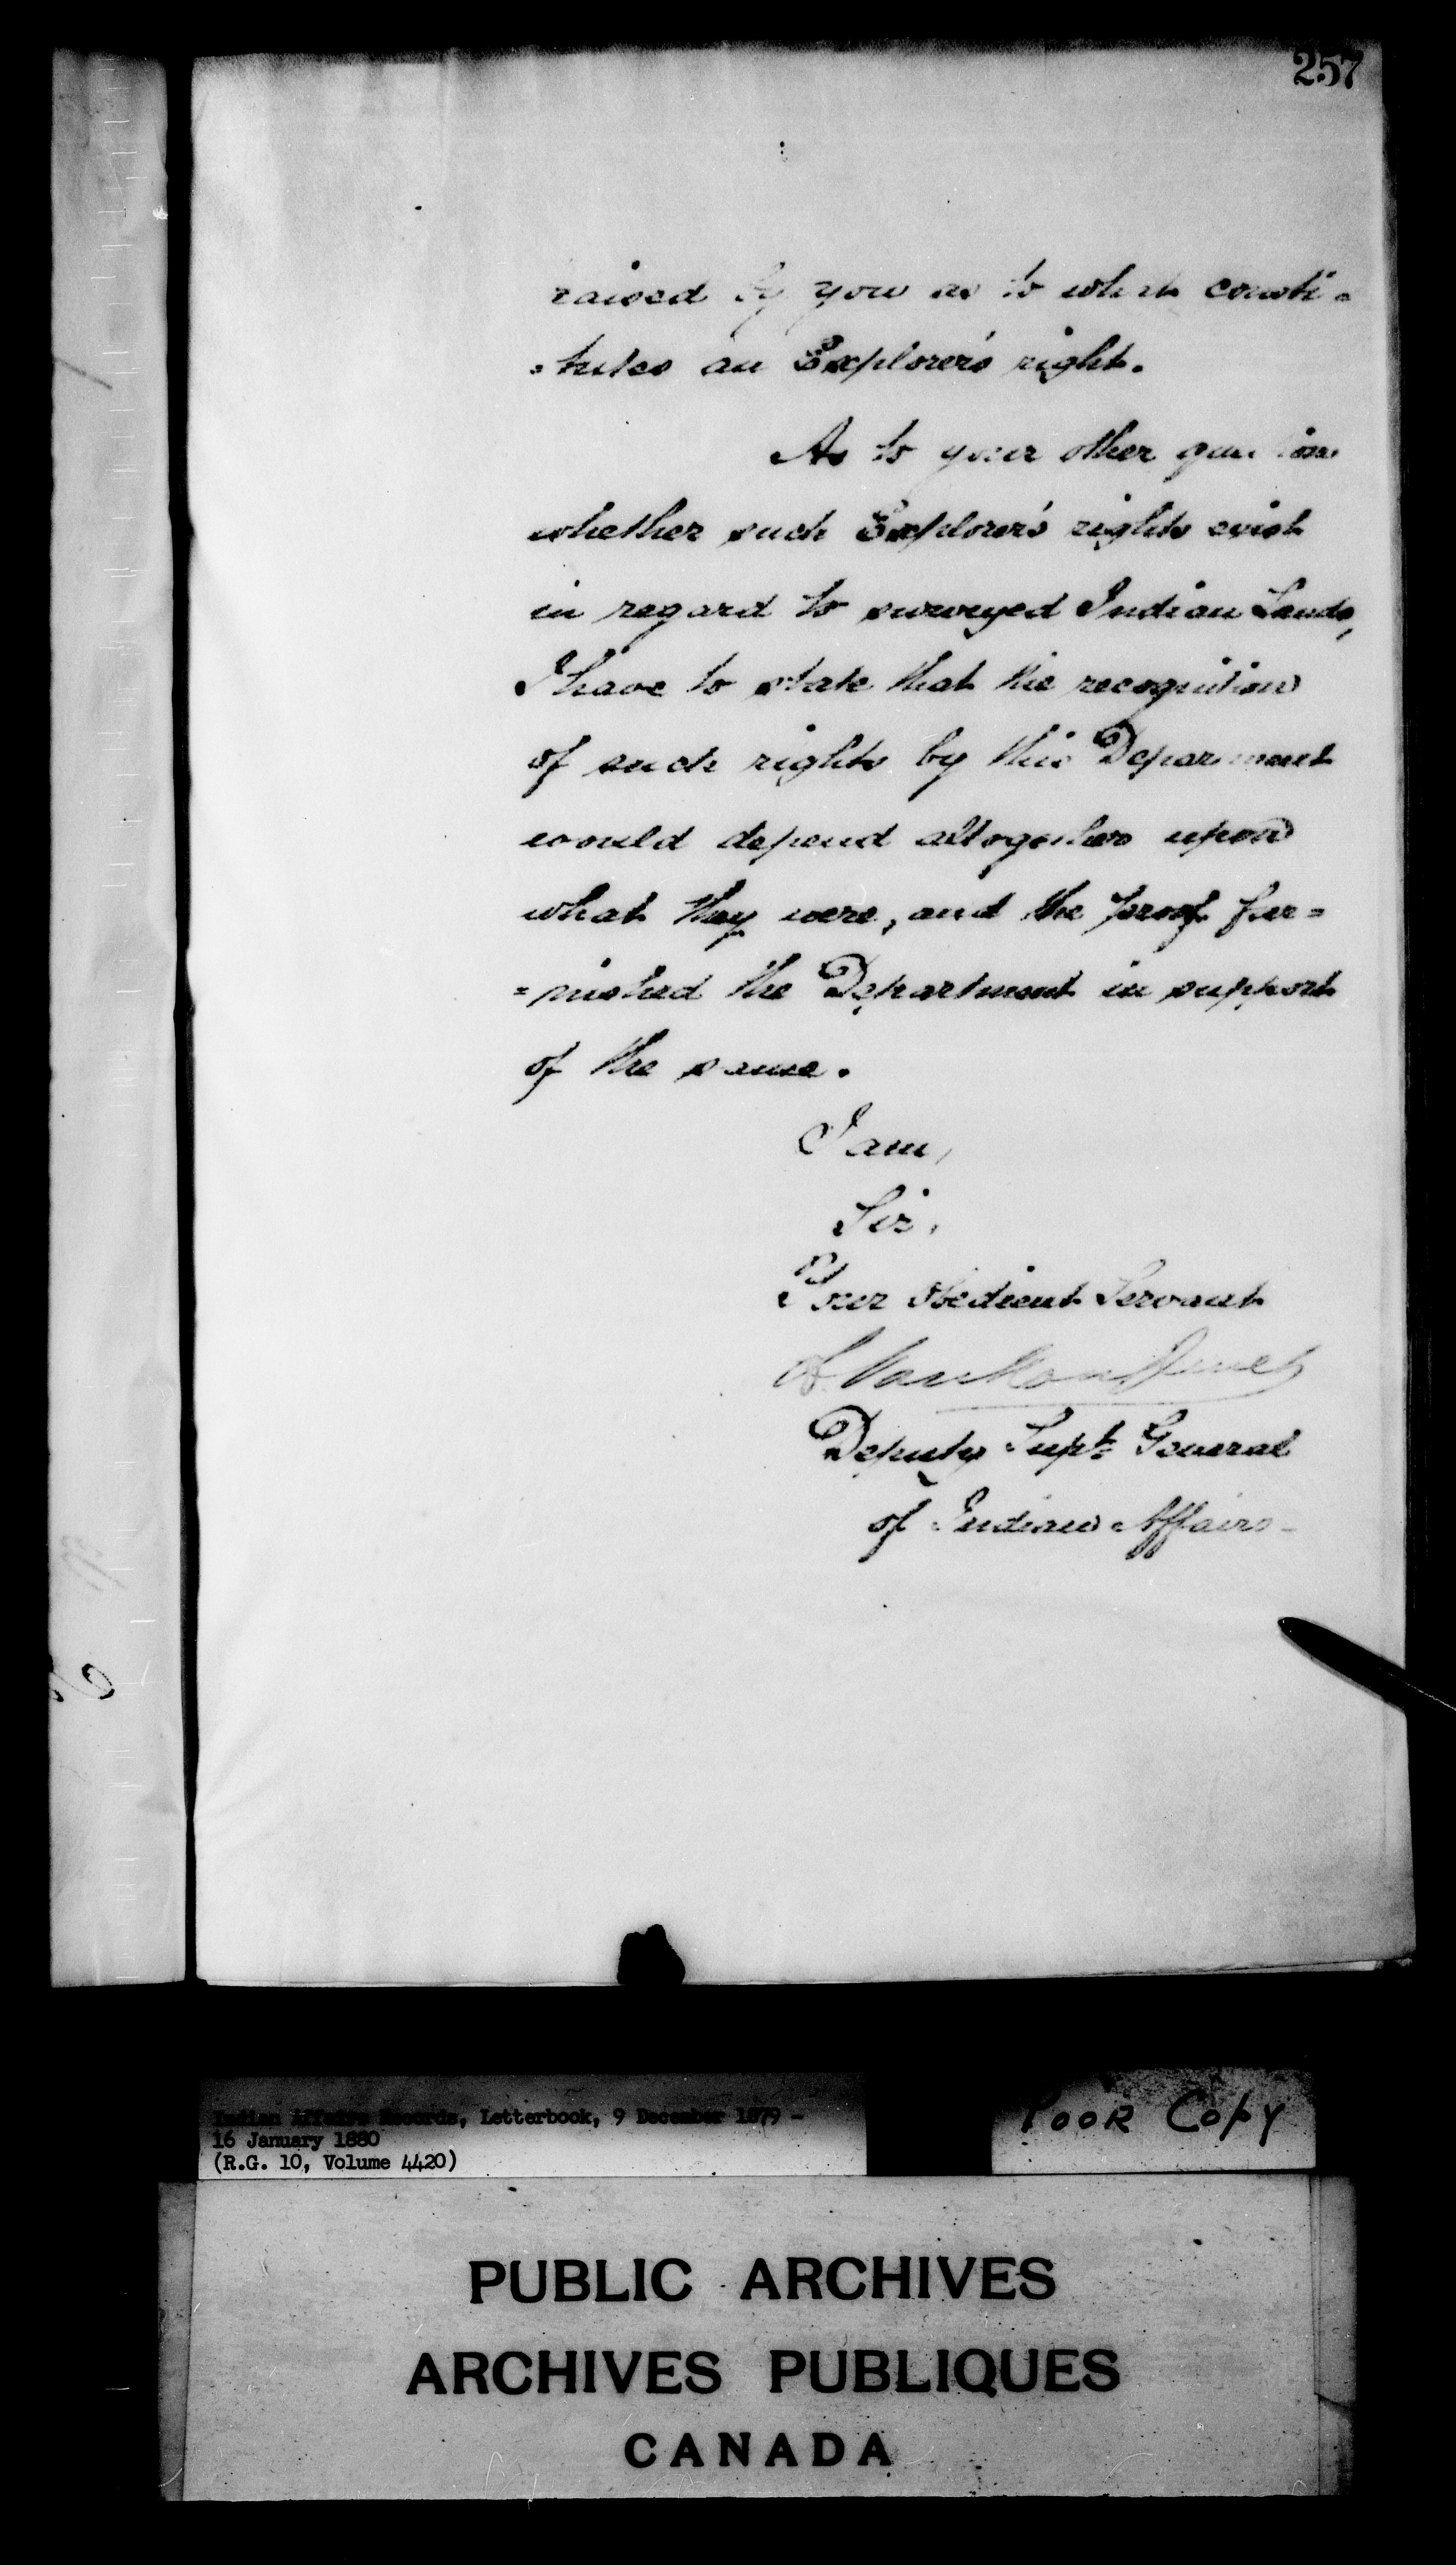 257
raised by you as to what consti-
-tutes an Explorer's right.
As to your other question
whether such Explorer's rights exist
in regard to surveyed Indian Lands,
I have to state that the recognition
of such rights by this Department
would depend altogether upon
what they were, and the proof fur=
=nished the Department in support
of the same.
I am,
Sir,
Your Obedient Servant
L. VanKoughnet
Deputy Supt. General
of Indian Affairs-
Indian Affairs Records, Letterbook, 9 December 1879 -
16 January 1880
(R.G. 10, Volume 4420)
POOR COPY
PUBLIC ARCHIVES
ARCHIVES PUBLIQUES
CANADA